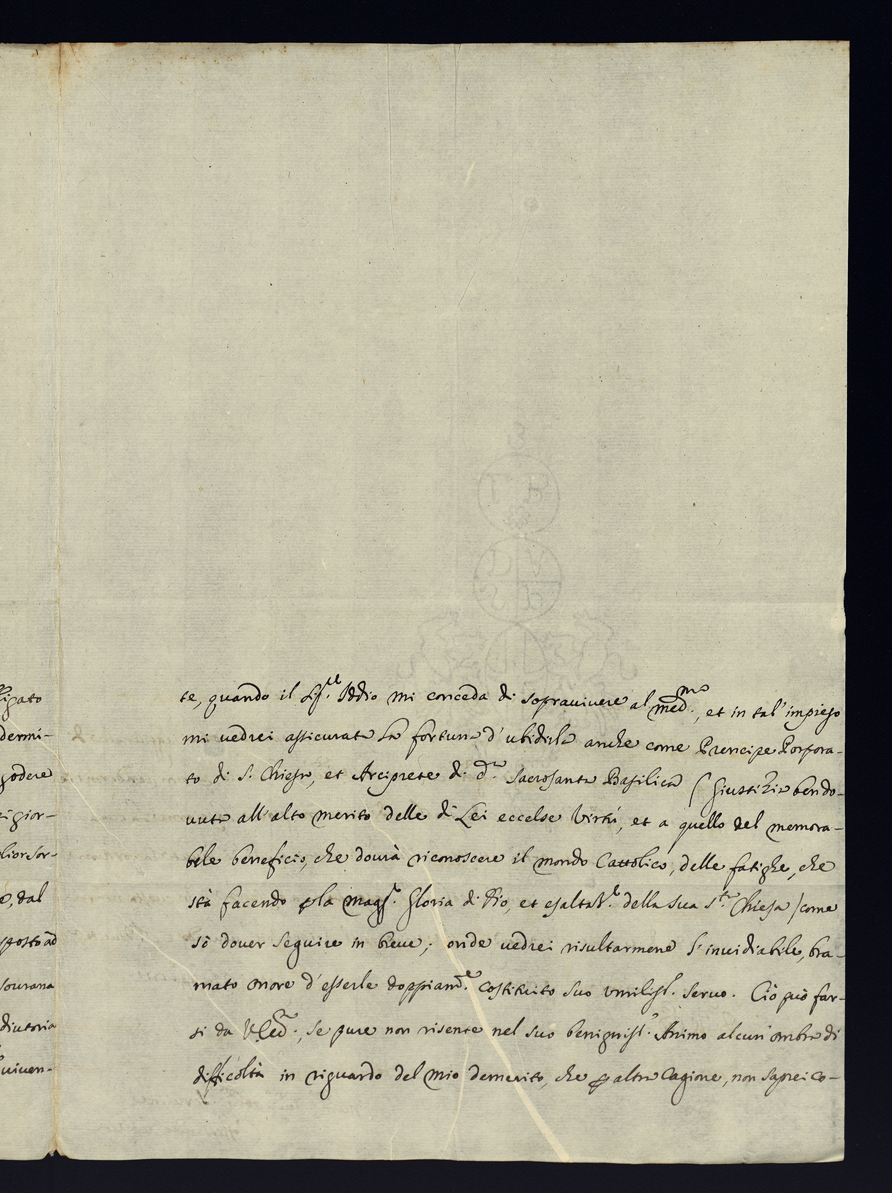 te, quando il Sig.re Iddio mi conceda di sopravivere al med.mo, et in tal' impiego
mi vedrei assicurata la fortuna d'ubidirla anche come Prencipe Porpora-
to di S. Chiesa, et Arciprete di d.ta Sacrosanta Basilica (Giustizia bendo-
vuta all'alto merito delle di Lei eccelse Virtù, et a quello del memora-
bile beneficio, che dourà riconoscere il mondo Cattolico, delle fatighe, che
stà facendo p la magg.r Gloria di Dio, et esaltaz.e della sua S.ta Chiesa) come
sò dover seguire in breve; onde vedrei risultarmene l'invidiabile, bra-
mato onore d'esserle doppiam.te costituito suo umiliss.o servo. Ciò può far-
si da V.S. , se pure non risente nel suo benigniss.o Animo alcun'ombra di
difficoltà in riguardo del mio demerito, che p altra cagione, non saprei co-
igato
dermi-
godere
igior-
liore sor-
e, dal
sposto ad
sourana
diutoria
viven-